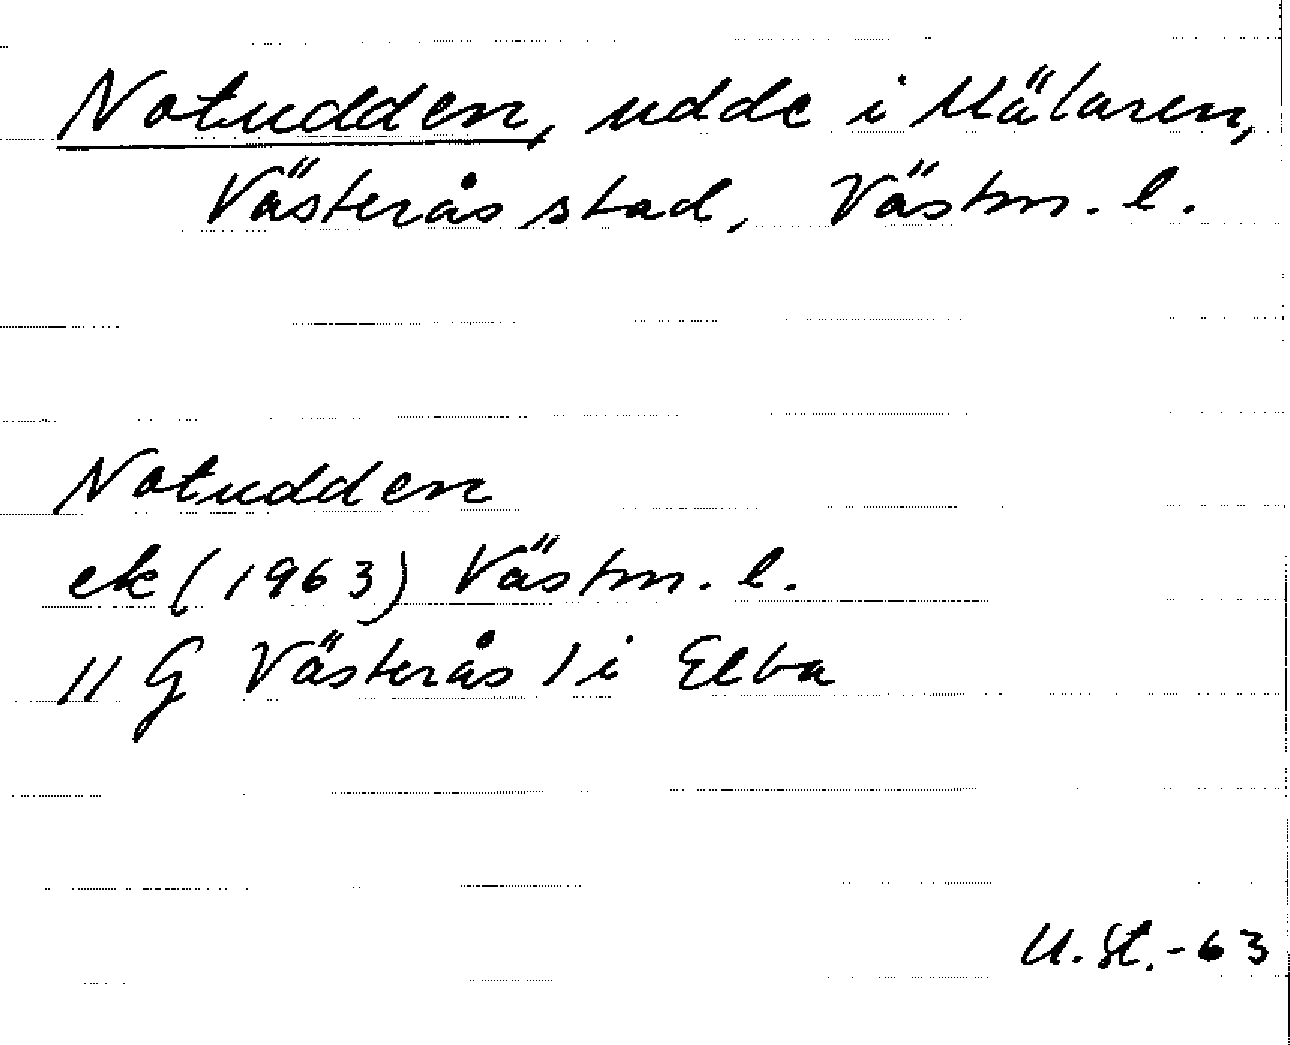 Notudden, udde i Mälaren,
Västerås stad, Västm. l.
Notudden
ek (1963) Västm. l.
11 G Västerås 1 i Elba
U. St. -63